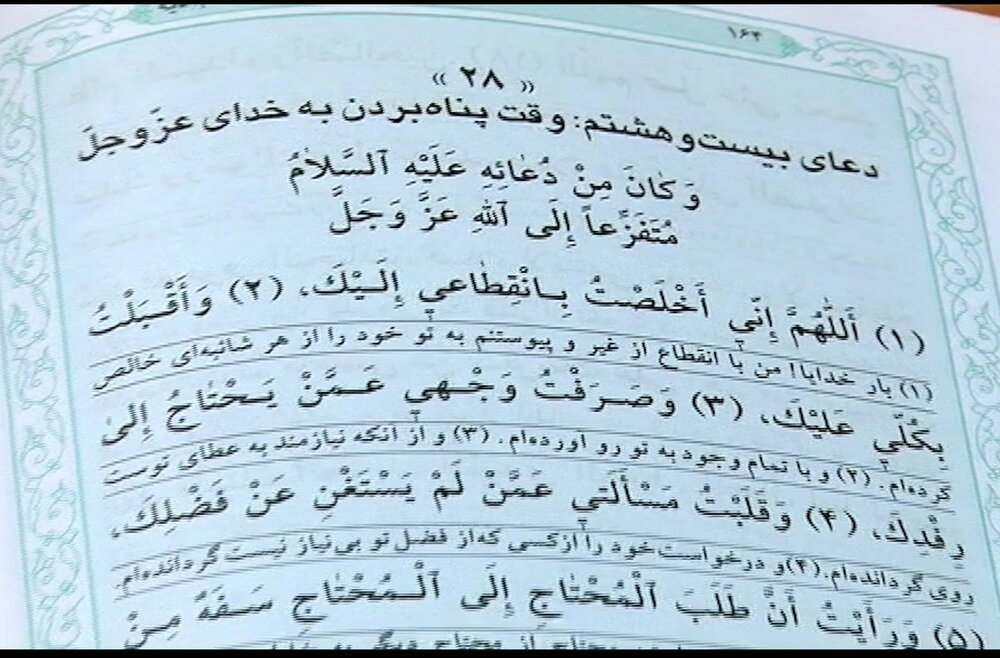 ۱۶۴
« ۲۸ »
دعای بیست‌و هشتم: وقت پناه‌بردن به خدای عزّوجلّ
وَكَانَ مِنْ دُعَائِهِ عَلَيْهِ ٱلسَّلَامُ
مُتَفَزِّعاً إِلَى ٱللهِ عَزَّ وَجَلَّ
(۱) أَللّٰهُمَّ إِنّي أَخْلَصْتُ بِانْقِطٰاعي إِلَيْكَ، (۲) وَأَقْبَلْتُ
(۱) بار خدایا! من با انقطاع از غیر و پیوستنم به تو خود را از هر شائبه‌ای خالص
بِكُلّي عَلَيْكَ، (۳) وَصَرَفْتُ وَجْهي عَمَّنْ يَحْتٰاجُ إِلىٰ
کرده‌ام. (۲) و با تمام وجود به تو رو آورده‌ام. (۳) و از آنکه نیازمند به عطای توست
رِفْدِكَ، (۴) وَقَلَبْتُ مَسْأَلَتي عَمَّنْ لَمْ يَسْتَغْنِ عَنْ فَضْلِكَ،
روی گردانده‌ام. (۴) و درخواست خود را از کسی که از فضل تو بی‌نیاز نیست گردانده‌ام.
(۵) وَرَأَيْتُ أَنَّ طَلَبَ ٱلْمُحْتٰاجِ إِلَى ٱلْمُحْتٰاجِ سَفَهٌ مِنْ
محتاج از محتاج دیگر به